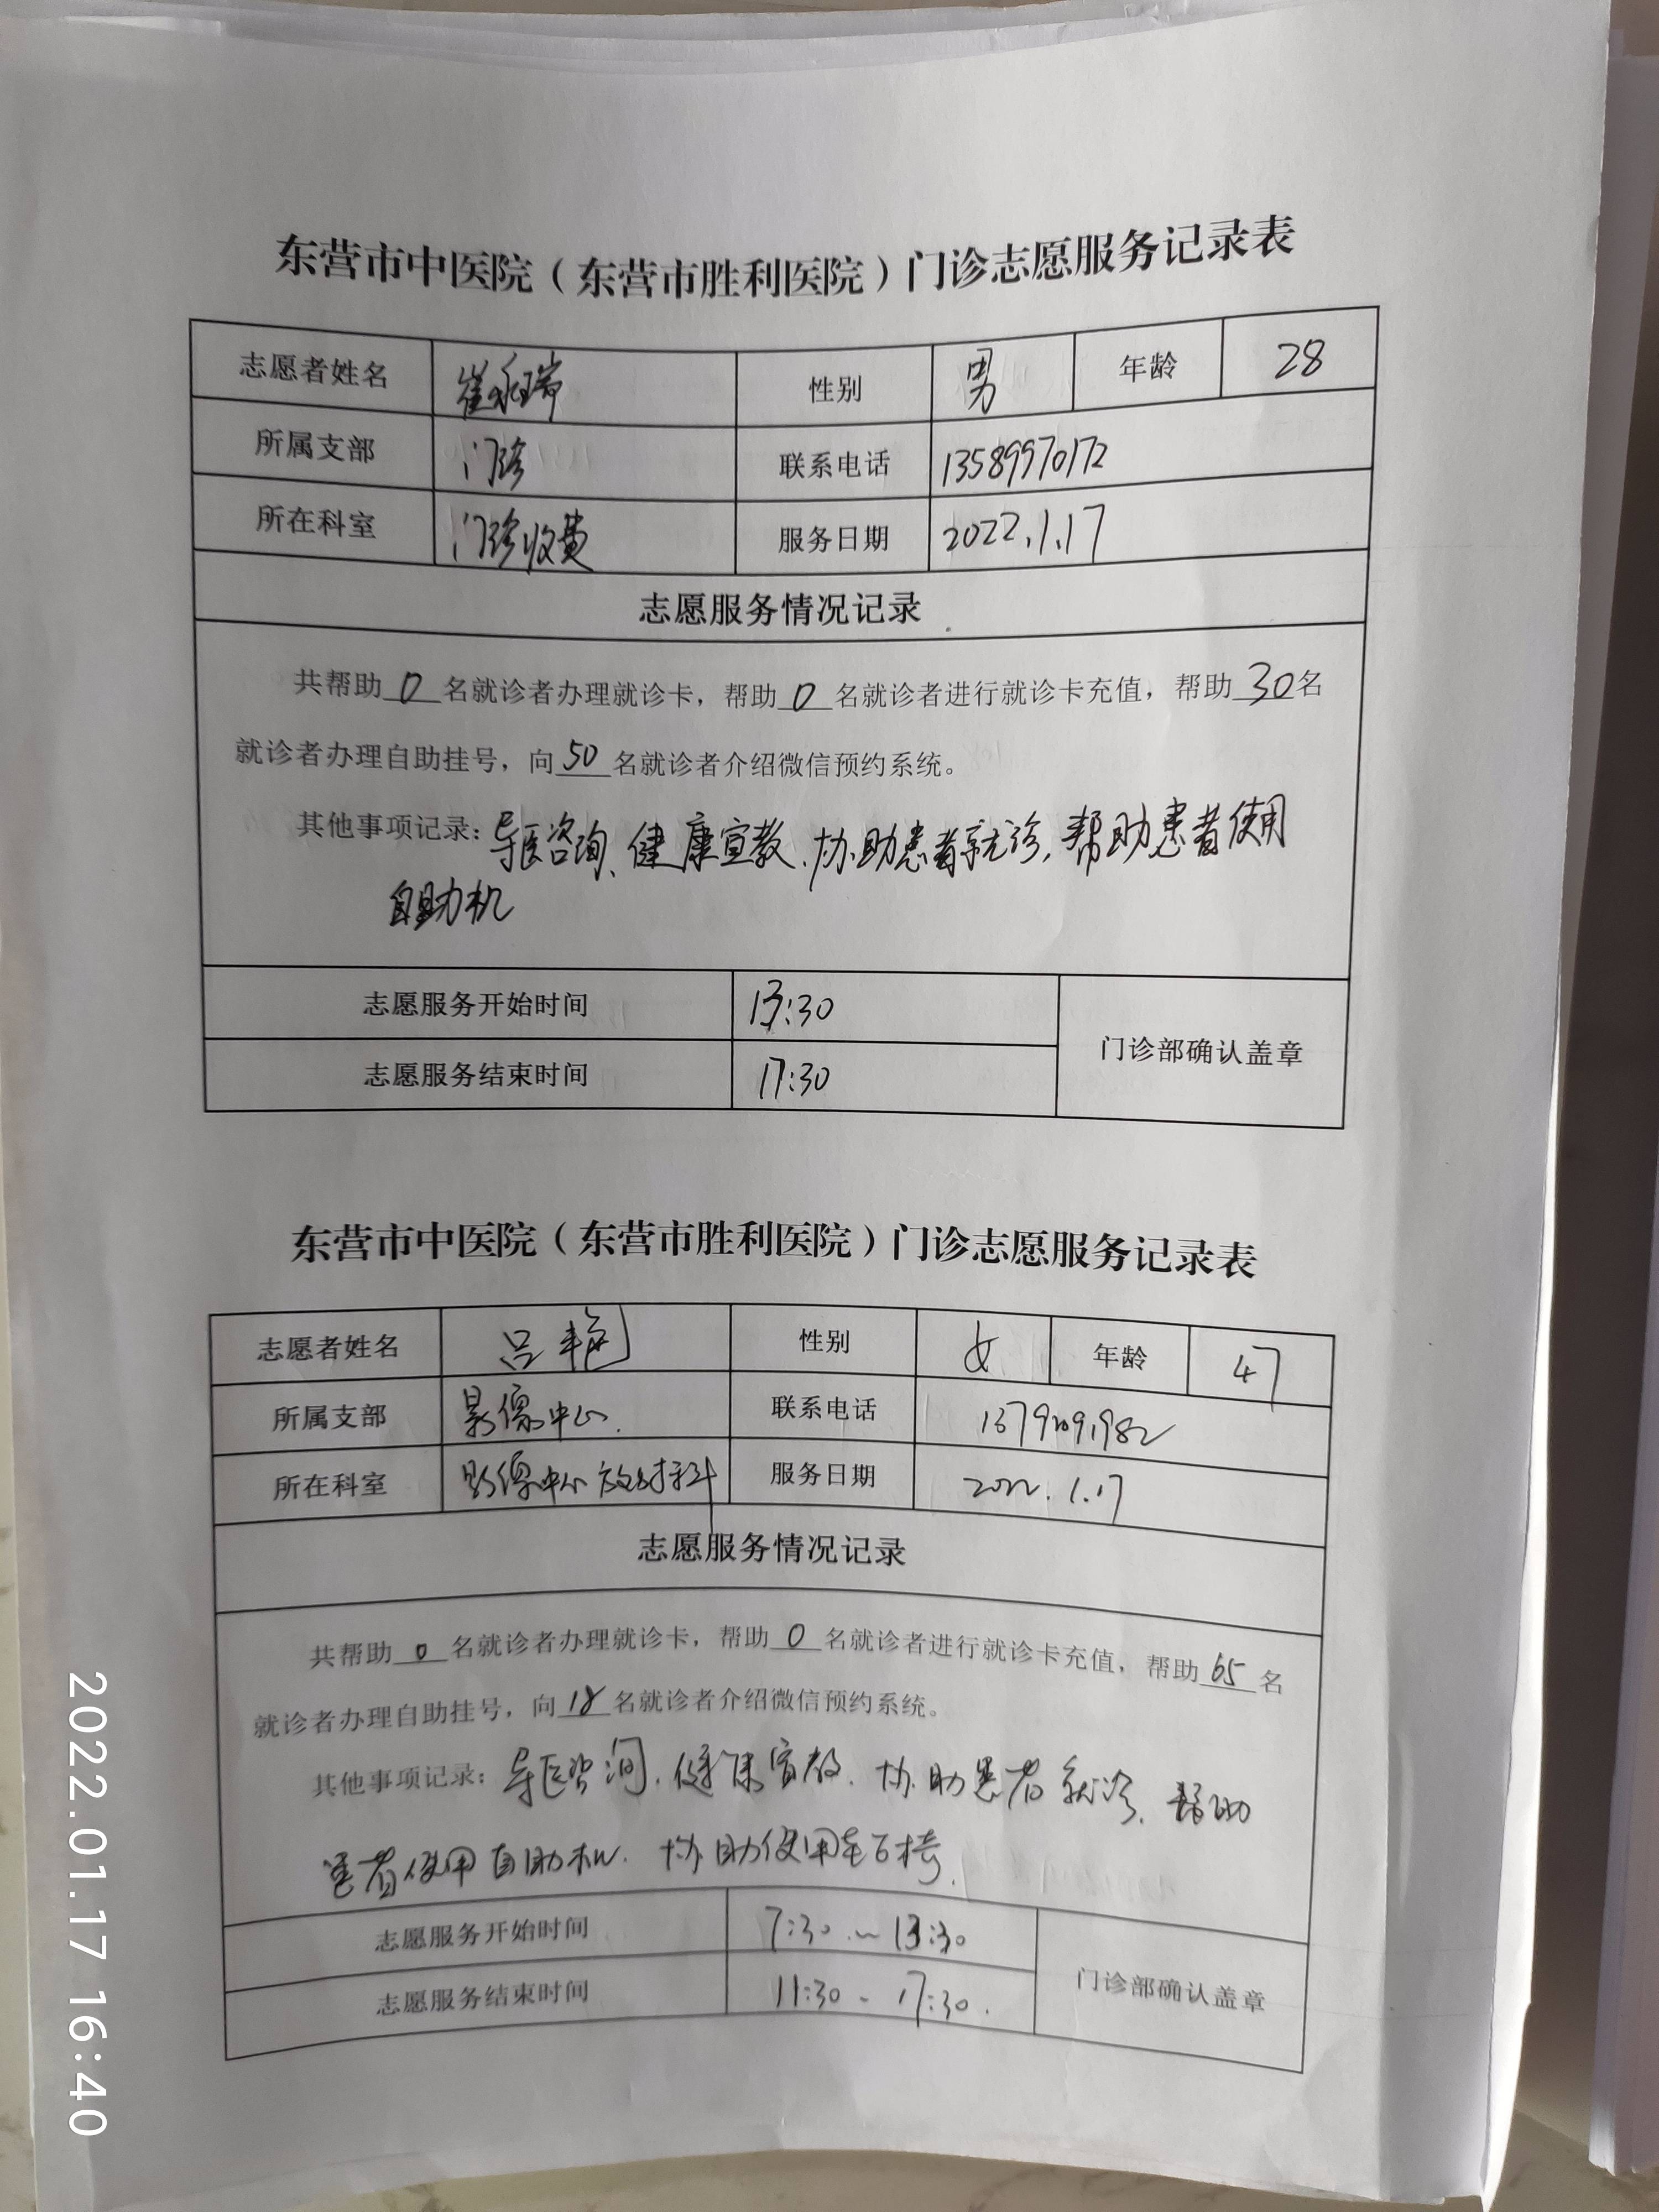 东营市中医院（东营市胜利医院）门诊志愿服务记录表
志愿者姓名 崔永瑞 性别 男 年龄 28
所属支部 门诊 联系电话 13589970172
所在科室 门诊收费 服务日期 2022.1.17
志愿服务情况记录
共帮助0名就诊者办理就诊卡，帮助0名就诊者进行就诊卡充值，帮助30名
就诊者办理自助挂号，向50名就诊者介绍微信预约系统。
其他事项记录：导医咨询、健康宣教、协助患者就诊，帮助患者使用
自助机
志愿服务开始时间 13:30
志愿服务结束时间 17:30
门诊部确认盖章
东营市中医院（东营市胜利医院）门诊志愿服务记录表
志愿者姓名 吕艳 性别 女 年龄 47
所属支部 影像中心. 联系电话
所在科室 影像中心放射科 服务日期 2022.1.17
志愿服务情况记录
共帮助0名就诊者办理就诊卡，帮助0名就诊者进行就诊卡充值，帮助65名
就诊者办理自助挂号，向18名就诊者介绍微信预约系统。
其他事项记录：导医咨询.健康宣教.协助患者就诊.帮助
患者使用自助机.协助使用
志愿服务开始时间 7:30~13:30
志愿服务结束时间 11:30-17:30.
门诊部确认盖章
2022.01.17 16:40